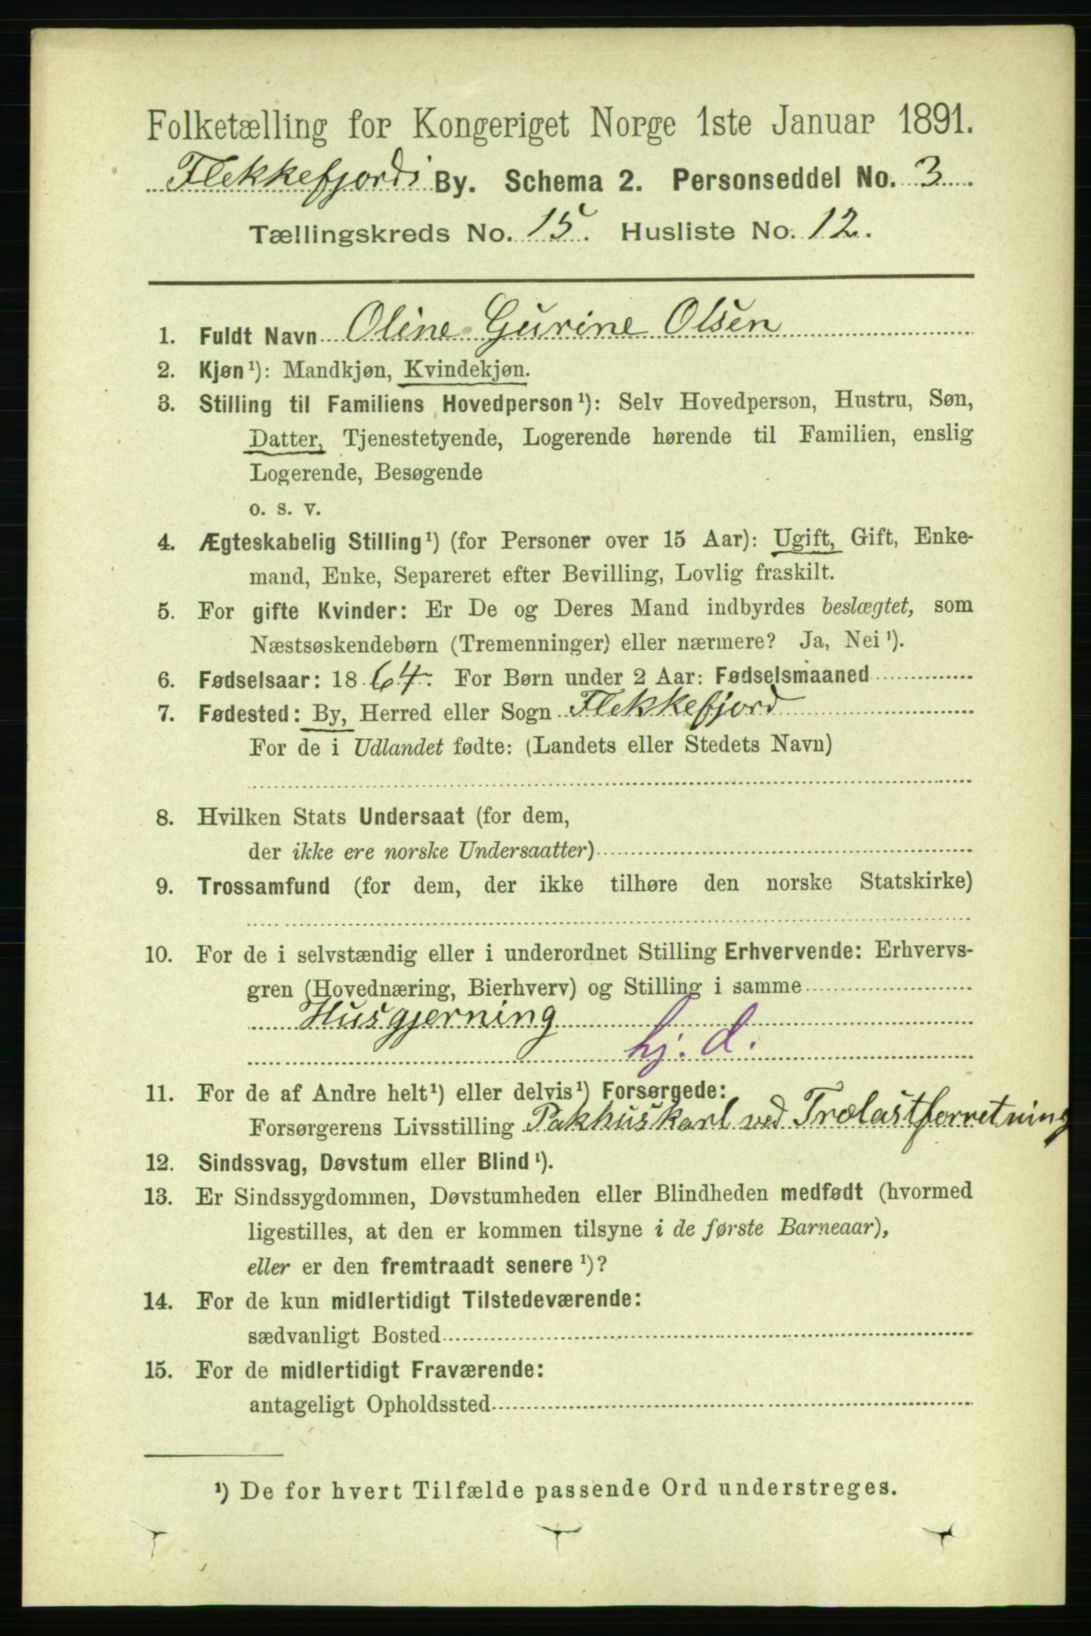 Folketælling for Kongeriget Norge 1ste Januar 1891.
Flekkefjords By. Schema 2. Personseddel No. 3.
Tællingskreds No. 15. Husliste No. 12.
1. Fuldt Navn Oline Gurine Olsen
2. Kjøn¹): Mandkjøn, Kvindekjøn.
3. Stilling til Familiens Hovedperson¹): Selv Hovedperson, Hustru, Søn,
Datter, Tjenestetyende, Logerende hørende til Familien, enslig
Logerende, Besøgende
o. s. v.
4. Ægteskabelig Stilling¹) (for Personer over 15 Aar): Ugift, Gift, Enke-
mand, Enke, Separeret efter Bevilling, Lovlig fraskilt.
5. For gifte Kvinder: Er De og Deres Mand indbyrdes beslægtet, som
Næstsøskendebørn (Tremenninger) eller nærmere? Ja, Nei¹).
6. Fødselsaar: 1864. For Børn under 2 Aar: Fødselsmaaned
7. Fødested: By, Herred eller Sogn Flekkefjord
For de i Udlandet fødte: (Landets eller Stedets Navn)
8. Hvilken Stats Undersaat (for dem,
der ikke ere norske Undersaatter)
9. Trossamfund (for dem, der ikke tilhøre den norske Statskirke)
10. For de i selvstændig eller i underordnet Stilling Erhvervende: Erhvervs-
gren (Hovednæring, Bierhverv) og Stilling i samme
Husgjerning
hj. d.
11. For de af Andre helt¹) eller delvis¹) Forsørgede:
Forsørgerens Livsstilling Pakhuskarl ved Trælastforretning
12. Sindssvag, Døvstum eller Blind¹).
13. Er Sindssygdommen, Døvstumheden eller Blindheden medfødt (hvormed
ligestilles, at den er kommen tilsyne i de første Barneaar),
eller er den fremtraadt senere¹)?
14. For de kun midlertidigt Tilstedeværende:
sædvanligt Bosted
15. For de midlertidigt Fraværende:
antageligt Opholdssted
¹) De for hvert Tilfælde passende Ord understreges.